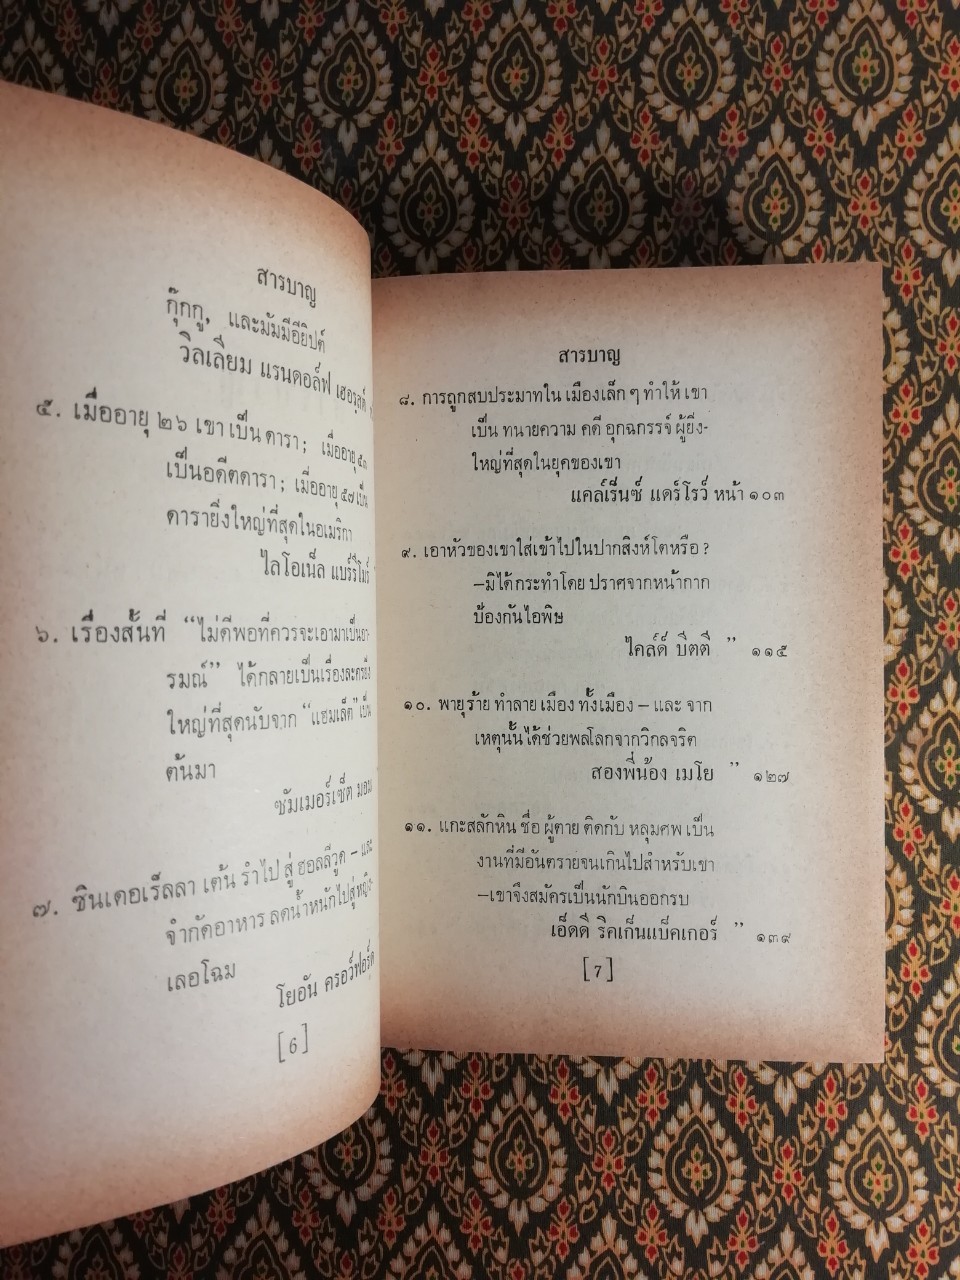 สารบาญ
กุ๊กกู, และมัมมีอียิปต์
วิลเลียม แรนดอล์ฟ เฮอรสท์
๕. เมื่ออายุ ๒๖ เขา เป็น ดารา ; เมื่ออายุ ๕๓
เป็นอดีตดารา ; เมื่ออายุ ๕๗ เป็น
ดารายิ่งใหญ่ที่สุดในอเมริกา
ไลโอเน็ล แบร์รี่โมร์
๖. เรื่องสั้นที่ “ไม่ดีพอที่ควรจะเอามาเป็นอา-
รมณ์” ได้กลายเป็นเรื่องละครยิ่ง
ใหญ่ที่สุดนับจาก “แฮมเล็ต” เป็น
ต้นมา
ซัมเมอร์เซ็ต มอม
๗. ซินเดอเร็ลลา เต้น รำไป สู่ ฮอลลีวูด - และ
จำกัดอาหาร ลดน้ำหนักไปสู่หญิง-
เลอโฉม
โยอัน ครอว์ฟอร์ด
[ 6 ]
สารบาญ
๘. การถูกสบประมาทใน เมืองเล็ก ๆ ทำให้ เขา
เป็น ทนายความ คดี อุกฉกรรจ์ ผู้ยิ่ง-
ใหญ่ที่สุดในยุคของเขา
แคล์เร็นซ์ แดร์โรว์ หน้า ๑๐๓
๙. เอาหัวของเขาใส่เข้าไปในปากสิงห์โตหรือ ?
—มิได้กระทำโดย ปราศจากหน้ากาก
ป้องกันไอพิษ
ไคล์ด์ บีตตี ” ๑๑๕
๑๐. พายุร้าย ทำลาย เมือง ทั้งเมือง – และ จาก
เหตุนั้นได้ช่วยพลโลกจากวิกลจริต
สองพี่น้อง เมโย ” ๑๒๗
๑๑. แกะสลักหิน ชื่อ ผู้ตาย ติดกับ หลุมศพ เป็น
งานที่มีอันตรายจนเกินไปสำหรับเขา
—เขาจึงสมัครเป็นนักบินออกรบ
เอ็ดดี ริคเก็นแบ็คเกอร์ ” ๑๓๙
[ 7 ]